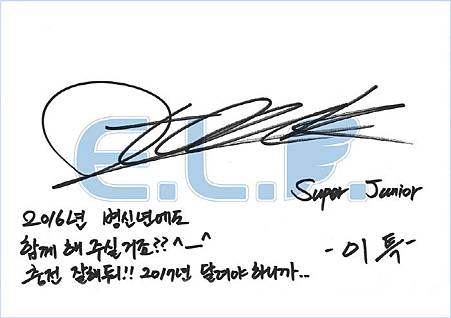 E.L.F.
Super Junior
2016년 병신년에도
함께 해 주실거죠?? ^__^
충전 잘해둬!! 2017년 달려야 하니까..
-이특-